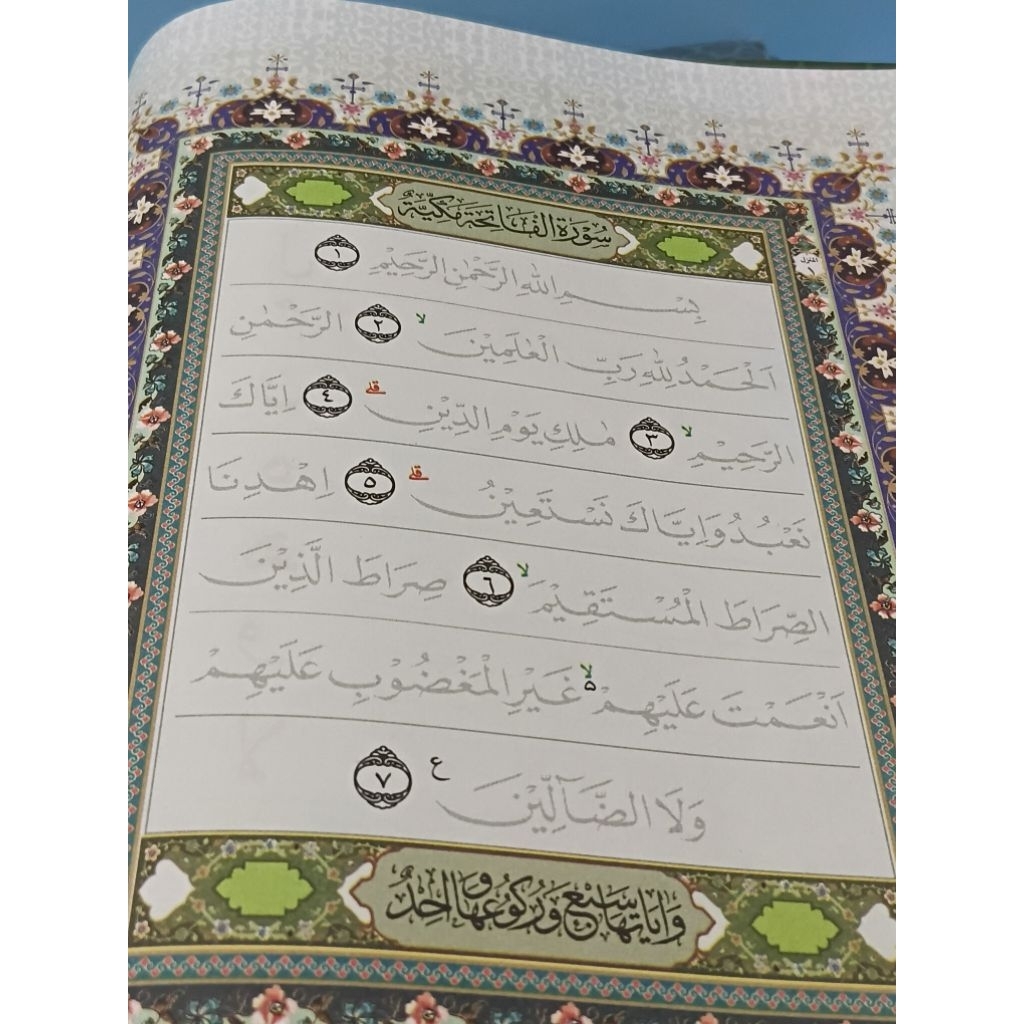 سُوْرَةُ الْفَاتِحَةِ مَكِّيَّةٌ
المنزل ١
بِسْمِ اللهِ الرَّحْمٰنِ الرَّحِيْمِ ١
اَلْحَمْدُ لِلّٰهِ رَبِّ الْعٰلَمِيْنَ ۙ ٢ الرَّحْمٰنِ
الرَّحِيْمِ ۙ ٣ مٰلِكِ يَوْمِ الدِّيْنِ ؕ ٤ اِيَّاكَ
نَعْبُدُ وَاِيَّاكَ نَسْتَعِيْنُ ؕ ٥ اِهْدِنَا
الصِّرَاطَ الْمُسْتَقِيْمَ ۙ ٦ صِرَاطَ الَّذِيْنَ
اَنْعَمْتَ عَلَيْهِمْ ۙ۵ غَيْرِ الْمَغْضُوْبِ عَلَيْهِمْ
وَلَا الضَّآلِّيْنَ ع ٧
وَاٰيَاتُهَا سَبْعٌ وَّرُكُوْعُهَا وَاحِدٌ